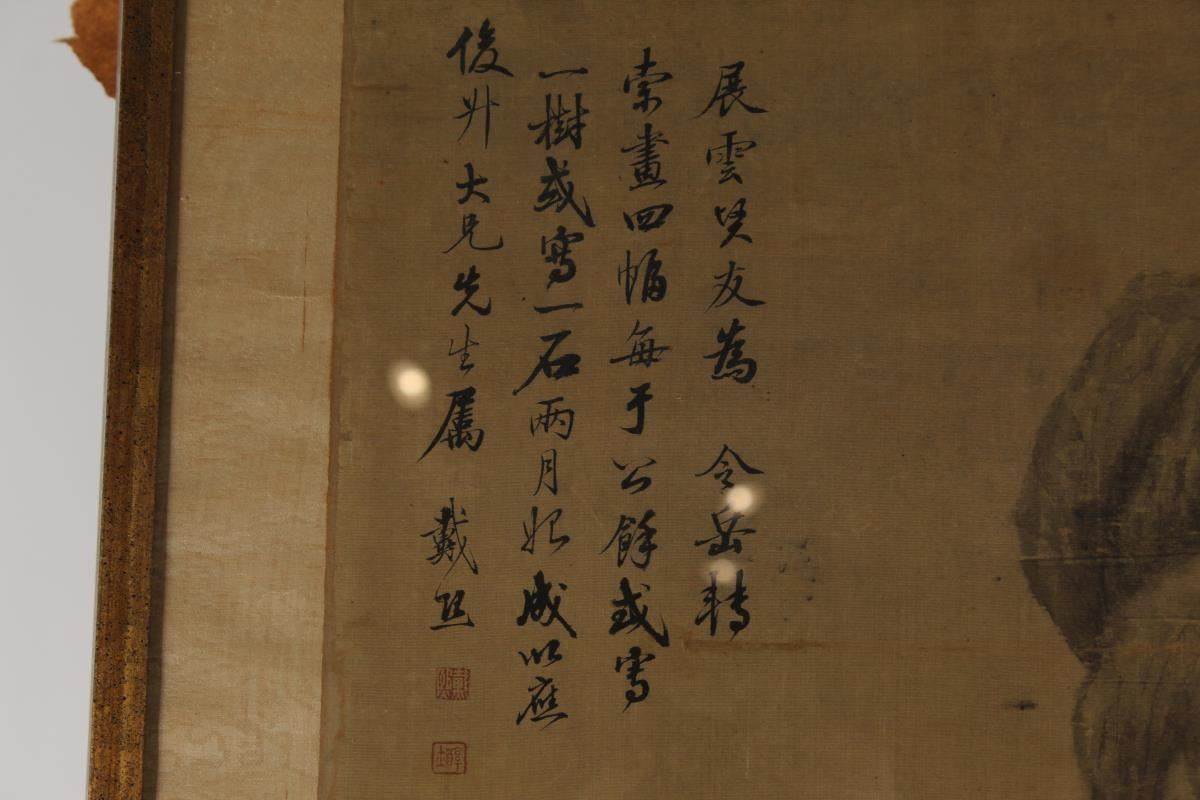 展雲賢友為 令岳轉
索畫四幅每于公餘或寫
一樹或寫一石兩月始成以應
俊升大兄先生屬 戴熙
戴熙
醇士